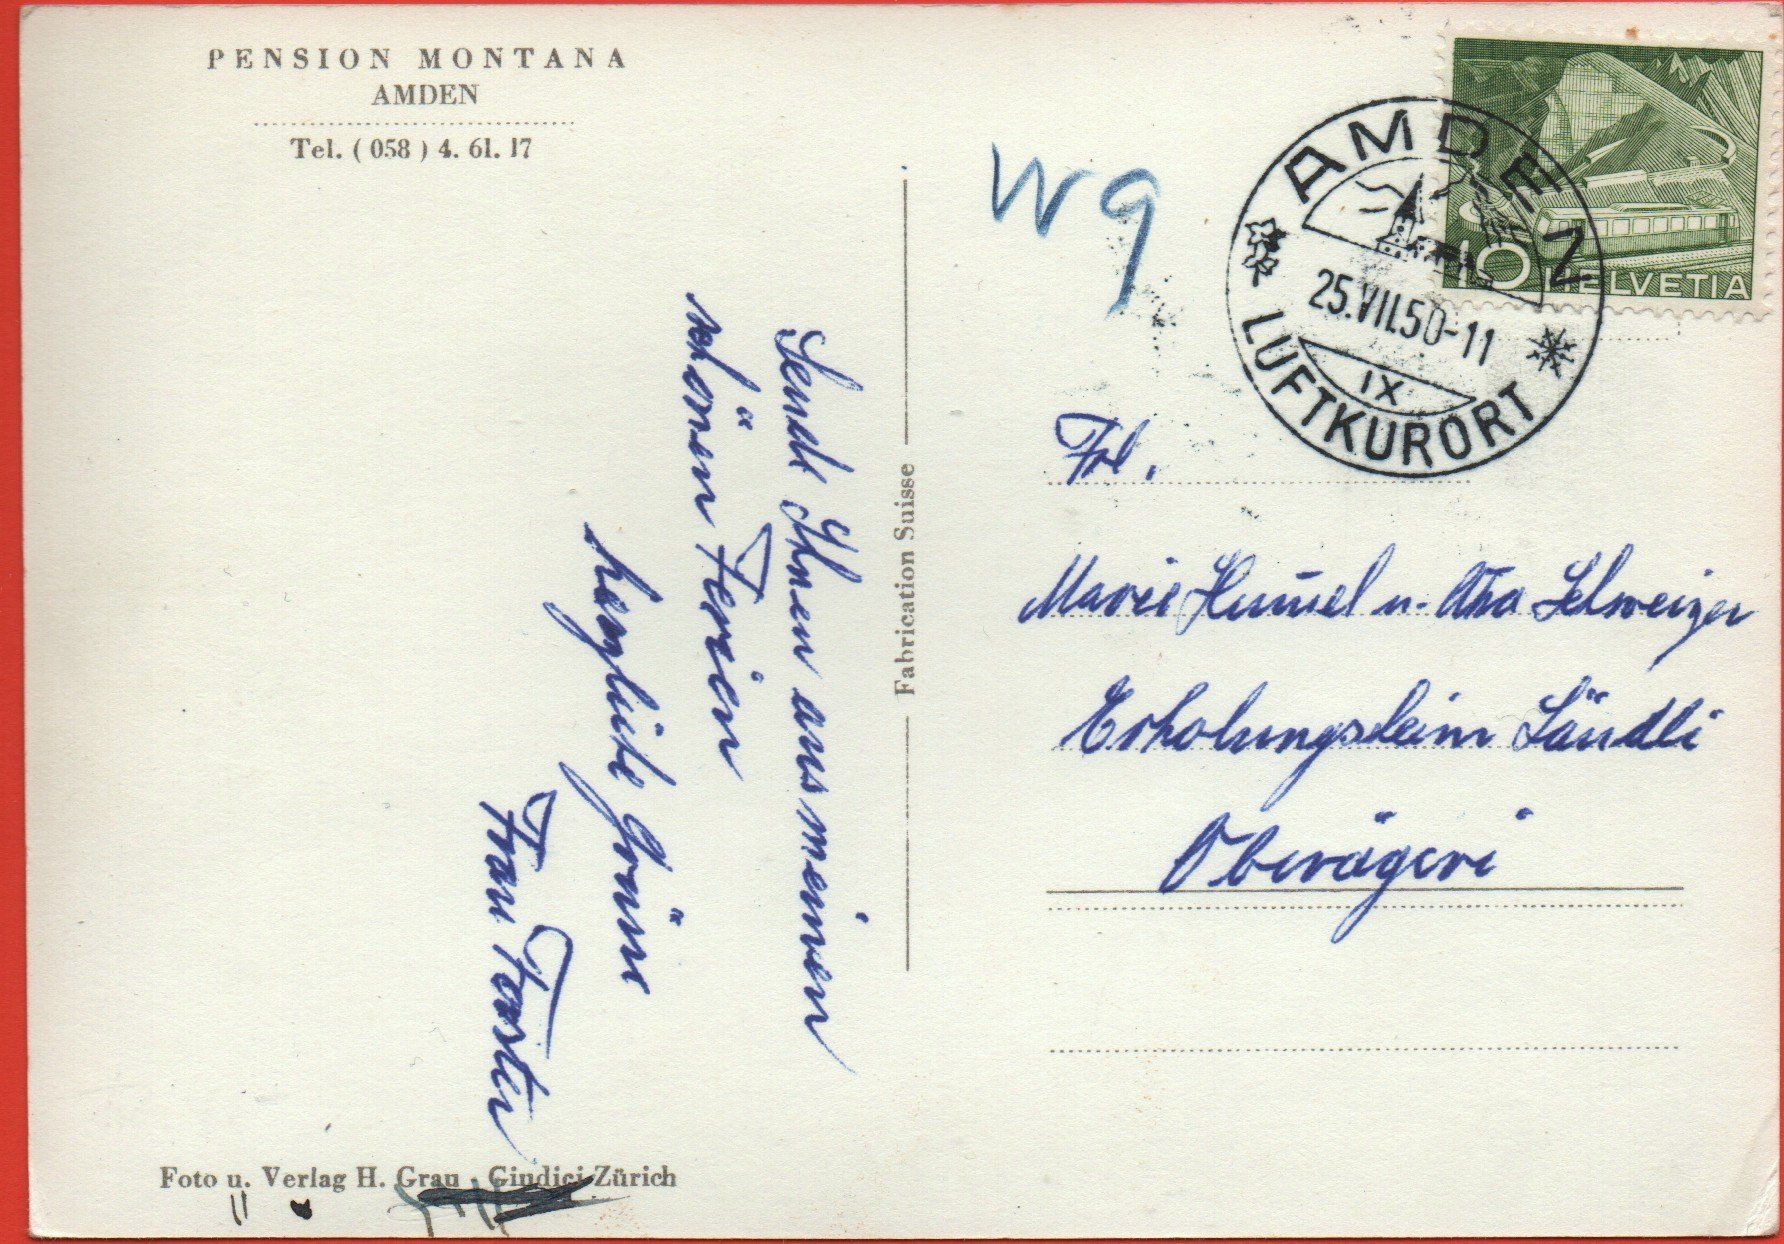 PENSION MONTANA
AMDEN
Tel. ( 058 ) 4. 61. 17
W 9
AMDEN
25.VII.50-11
IX
LUFTKURORT
10 HELVETIA
Sende Ihnen aus meinen
schönen Ferien
herzliche Grüsse
Frau Forster
Fabrication Suisse
Frl.
Marie Hummel u. Schweizer
Erholungsheim Ländli
Oberägeri
Foto u. Verlag H. Grau - Giudici Zürich